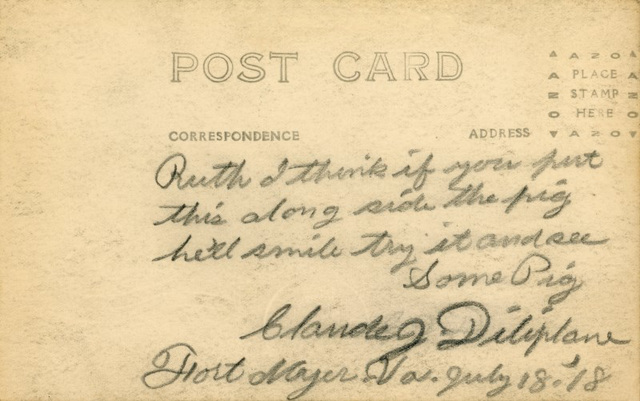 POST CARD
AZO
PLACE
STAMP
HERE
AZO
CORRESPONDENCE
ADDRESS
Ruth I think if you put
this along side the pig
he'll smile try it and see
Some Pig
Claude J Diliplane
Fort Myer. Va. July 18. '18